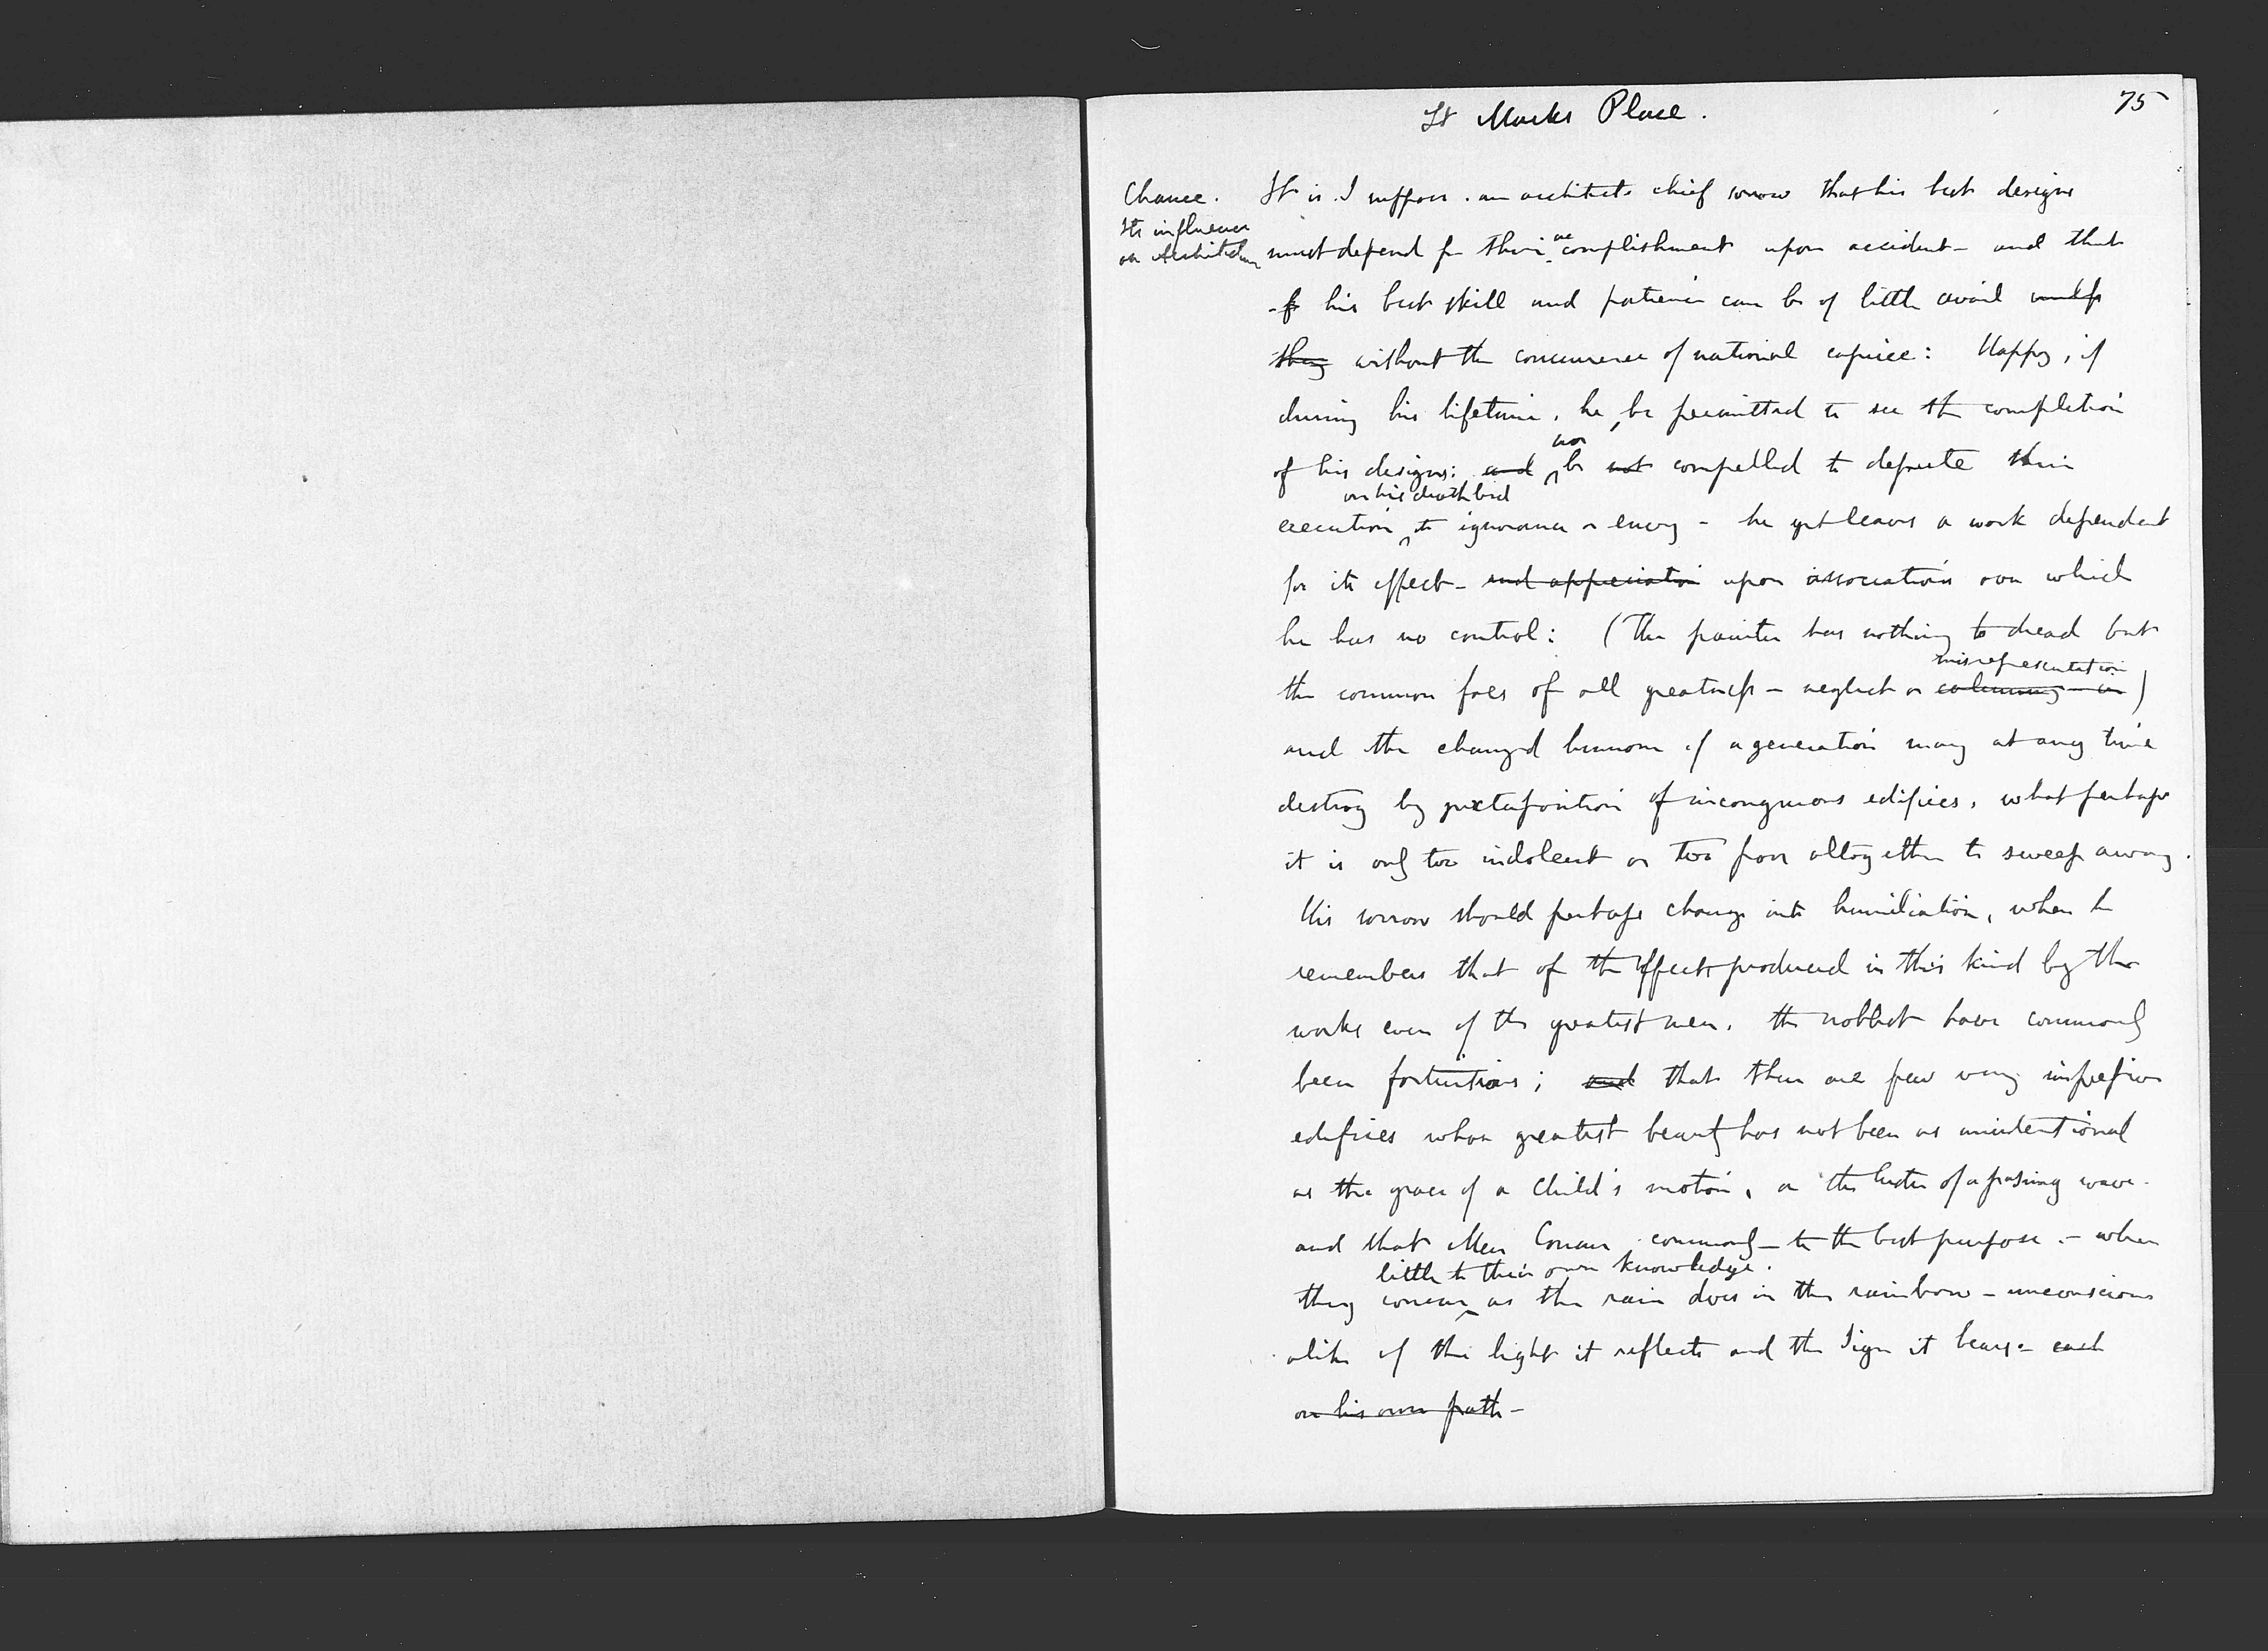 75
St Marks Place.
Chance.
Its influence
on Architecture
It is. I suppose. an architects chief sorrow that his best designs
must depend for their accomplishment upon accident - and that
his best skill and patience can be of little avail unless
they without the concurrence of national caprice: Happy, if
during his lifetime, he, be permitted to see the completion
nor
of his designs: and be not compelled to depute their
on his deathbed
execution to ignorance or envy - he yet leaves a work dependent
for its effect - and appreciation upon associations over which
he has no control: (The painter has nothing to dread but
misrepresentation
the common foes of all greatness - neglect or calumny - in)
and the changed humour of a generation may at any time
destroy by juxtaposition of incongruous edifices, what perhaps
it is only too indolent or too poor altogether to sweep away.
His sorrow should perhaps change into humiliation, when he
remembers that of the effects produced in this kind by the
works even of the greatest men. the noblest have commonly
been fortuitous; and that there are few very impressive
edifices whose greatest beauty has not been as unintentional
as the grace of a child's motion, or the lustre of a passing wave.
and that Men Concur commonly - to the best purpose - when
little to their own knowledge.
they concur as the rain does in the rainbow - unconscious
alike of the light it reflects and the Sign it bears - each
on his own path -